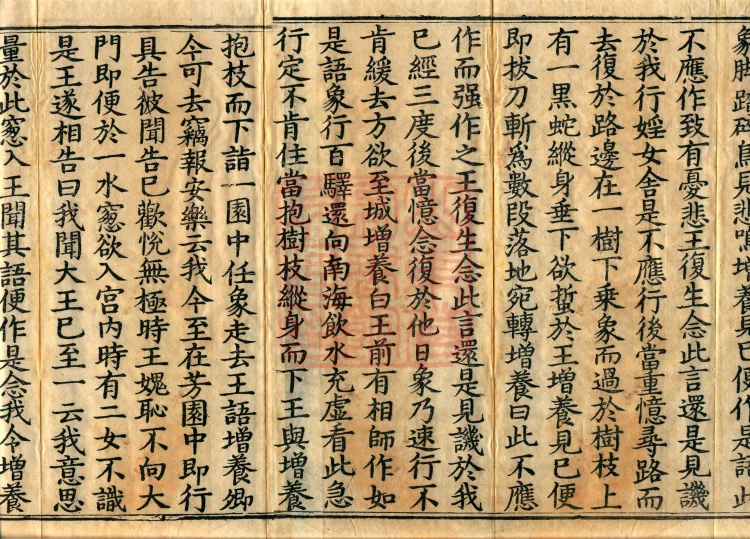 象脚踏碎鳥見悲鳴增養見已便作是語此
不應作致有憂悲王復生念此言還是見譏
於我行婬女舍是不應行後當重憶尋路而
去復於路邊在一樹下乘象而過於樹枝上
有一黑蛇縱身垂下欲蜇於王增養見已便
即拔刀斬爲數段落地宛轉增養曰此不應
作而强作之王復生念此言還是見譏於我
已經三度後當憶念復於他日象乃速行不
肯緩去方欲至城增養白王前有相師作如
是語象行百驛還向南海飲水充虛看此急
行定不肯住當抱樹枝縱身而下王與增養
抱枝而下詣一園中任象走去王語增養卿
今可去竊報安樂云我今至在芳園中即行
具告彼聞告已歡悅無極時王媿恥不向大
門即便於一水窻欲入宮內時有二女不識
是王遂相告曰我聞大王已至一云我意思
量於此窻入王聞其語便作是念我今增養